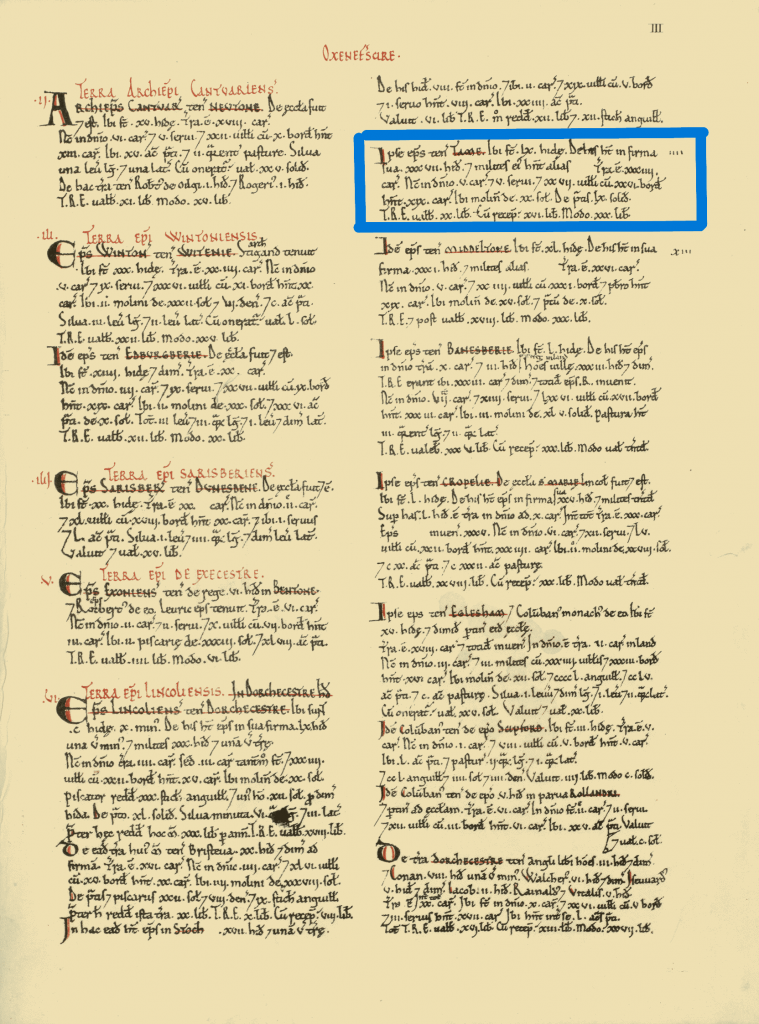 III
OXENEFSCIRE.
.II. TERRA ARCHIEPI CANTVARIENS.
ARCHIEPS CANTVAR ten NEWTONE. De æccła fuit
7 est. Ibi st̄ .xv. hidę. Tra.ē.xviii. car̄.
Nc̄ in dn̄io .vi. car̄.7 v. serui.7 xxii. uiłłi cū .x. borđ hn̄t
xiii. car̄. Ibi .xv. ac̄ p̄ti.7 ii. ꝗrent̄ pasturę. Silua
una leū lḡ.7 una lat̄. Cū onerat̄
De hac tra ten Robt̄ de Oilgi .i. hiđ.7 Rogeri .i. hiđ.
T.R.E. ualb̄ .xi. lib̄. modo .xv. lib̄.
.III. TERRA EPI WINTONIENSIS.
EPS WINTON ten WITENIE. Stigand arch tenuit
Ibi st̄ .xxx. hidę. Tra.ē
Nc̄ in dn̄io
.v. car̄.7 ix. serui.7 xxxvi. uiłłi cū .xi. borđ hn̄t xx
car̄. Ibi .ii. molini de xxxii. soł.7 vi. den̄.7 c. ac̄ p̄ti.
Silua .iii. leū lḡ.7 ii. leū lat̄. Cū onerat̄ uał .l. soł.
T.R.E. ualb̄ .xxii. lib̄. Modo .xxv. lib̄.
Idē ep̄s ten EDBURGBERIE. De æccła fuit 7 est.
Ibi st̄ .xiiii. hidę 7 dim̄. Tra.ē.xx. car̄.
Nc̄ in dn̄io .iiii. car̄.7 ix. serui.7 xxvii. uiłłi cū .ix. borđ
hn̄t .xix. car̄. Ibi .ii. molini de .xxx. soł.7 xxvi. ac̄
p̄ti de .x. soł.
T.R.E. ualb̄ .xii. lib̄. Modo .xx. lib̄.
.IIII. TERRA EPI SARISBERIENS.
EPS SARISBER ten DUNESDENE. De æccła fuit 7.ē.
Ibi st̄ .xx. hidę. Tra.ē.xx. car̄. Nc̄ in dn̄io .ii. car̄
7 xl. uiłłi cū .xvii. borđ hn̄t .xx. car̄.7 ibi .i. seruus
7 l. ac̄ p̄ti. Silua .i. leū.7 iiii. ꝗ̄ lḡ.7 dim̄ leū lat̄.
Valuit 7 uał .xv. lib̄.
.V. TERRA EPI DE EXECESTRE.
EPS EXONIENS ten de rege .vi. hiđ in BENTONE.
7 Rotbert̄ de eo. Leuric ep̄s tenuit. Tra.ē.vi. car̄.
Nc̄ in dn̄io .ii. car̄.7 ii. serui.7 x. uiłłi cū .vii. borđ hn̄t
.iii. car̄. Ibi .ii. piscarię de .xxxiii. soł.7 xlviii. ac̄ p̄ti.
T.R.E. ualb̄ .iiii. lib̄. Modo .vi. lib̄.
.VI. TERRA EPI LINCOLIENSIS. IN DORCHECESTRE HĐ
EPS LINCOLIENS ten DORCHECESTRE. Ibi sun̄t
.c. hidę .x. min. De his ht̄ ep̄s in sua firma .lx. hiđ
una v̄ min.7 milites .xxx. hiđ 7 una v̄ tr̄ę.
Nc̄ in dn̄io
cū .xxii. borđ hn̄t .xv. car̄. Ibi molin̄ de .xx. soł.
Piscator redđ .xxx. stich̄ anguiłł.
De p̄to .xl. soliđ. Silua minuta
T.R.E. ualb̄ .xviii. lib̄.
De ead̄ tra hui ꝏ ten BRISTEUA .xx. hiđ 7 dim̄ ad
firmā. Tra.ē.xvi. car̄. Nc̄ in dn̄io .iiii. car̄.7 xlvi. uiłłi
cū .xv. borđ hn̄t .xx. car̄. Ibi .iii. molini de xxxviii. soł.
De p̄tis 7 piscariis .xxii. soł.7 viii. den̄.7 ix. stich̄ anguiłł.
T.R.E .x. lib̄. Cū recep̄ .vii. lib̄.
In hac ead̄ ht̄ ep̄s in Stoch .xvii. hiđ 7 una v̄ tr̄ę.
De his hiđ .viii. st̄ in dn̄io.7 ibi .ii. car̄.7 xix. uiłłi cū .v. borđ
7 i. seruo hn̄t .viii. car̄. Ibi .xxiiii. ac̄ p̄ti.
Valuit .vi. lib̄ T.R.E. m̊ redđ .xii. lib̄.7 xii. stich̄ anguiłł.
Ipse ep̄s ten TAME. Ibi st̄ .lx. hidę. De his ht̄ in firma ....
sua .xxxvii. hiđ.7 milites ei hn̄t alias Tra.ē.xxxiiii.
car̄. Nc̄ in dn̄io .v. car̄.7 v. serui.7 xxvii. uiłłi cū xxvi. borđ
hn̄t .xix. car̄. Ibi molin̄ de .xx. soł. De p̄tis .lx. soliđ.
T.R.E. ualb̄ .xx. lib̄. Cū recep̄ .xvi. lib̄. Modo .xxx. lib̄.
Idē ep̄s ten MIDDELTONE. Ibi st̄ .xl. hidę. De his ht̄ in sua .x...
firma .xxxi. hiđ.7 milites alias Tra.ē.xxvi. car̄.
Nc̄ in dn̄io .v. car̄.7 xxiiii. uiłłi cū .xxxi. borđ 7 pb̄ro hn̄t
.xix. car̄. Ibi molin̄ de .xv. soł.7 p̄tū de .x. soł.
T.R.E.7 post ualb̄ .xviii. lib̄. Modo .xxx. lib̄.
Ipse ep̄s ten BANESBERIE. Ibi st̄ .l. hidę. De his ht̄ ep̄s
in dn̄io tra .x. car̄.7 iii. hiđ
T.R.E. erant ibi .xxxiii. car̄ 7 dim̄.7 totiđ ep̄s .R. inuenit.
Nc̄ in dn̄io .vii. car̄.7 xiiii. serui.7 lxxvi. uiłłi cū .xvii. borđ
hn̄t .xxxiii. car̄. Ibi .iii. molini de .xlv. soliđ. Pastura ht̄
.iii. ꝗrent̄ lḡ.7 ii. ꝗ̄ lat̄.
T.R.E. ualeb̄ .xxxv. lib̄. Cū recep̄ .xxx. lib̄. Modo uał tn̄tđ.
Ipse ep̄s ten CROPELIE. De æccła S MARIE Lincoł fuit 7 est.
Ibi st̄ .l. hidę. De his ht̄ ep̄s in firma .xxv. hiđ.7 milites tn̄tđ
Sup has .l. hiđ.ē tra in dn̄io ad .x. car̄. Int̄ tot̄ tra.ē.xxx. car̄.
Ep̄s inuen̄ .xxxv. Nc̄ in dn̄io .vi. car̄.7 xii. serui.7 lv.
uiłłi cū .xxii. borđ hn̄t .xxxiiii. car̄. Ibi .ii. molini de .xxviii. soł.
7 c.xx. ac̄ p̄ti.7 cxxii. ac̄ pasturę.
T.R.E. ualb̄ .xxviii. lib̄. Cū recep̄ .xxx. lib̄. Modo uał tn̄tđ.
Ipse ep̄s ten EGLESHAM.7 Colūban monach de eo. Ibi st̄
.xv. hidę 7 dimiđ p̄tin eid̄ æccłę.
Tra.ē.xviii. car̄.7 totiđ inuen̄. In dn̄io.ē tra .ii. car̄ inland
Nc̄ in dn̄io .iii. car̄.7 iii. milites
hn̄t .xv. car̄. Ibi molin̄ de .xii. soł.7 cccc l. anguiłł.7 cclv.
ac̄ p̄ti.7 c. ac̄ pasturę. Silua .i. leuū 7 dim̄ lḡ.7 i. leū.7 ii. ꝗ̄ lat̄.
Cū onerat̄ uał .xxv. soł. Valuit 7 uał .xx. lib̄.
Idē Colūban ten de ep̄o SCIPFORD. Ibi st̄ .iii. hidę. Tra.ē.v.
car̄. Nc̄ in dn̄io .i. car̄.7 viii. uiłłi cū .v. borđ hn̄t .v. car̄.
Ibi .l. ac̄ p̄ti.7 pastur̄ .ii. ꝗ̄ lḡ.7 .i. ꝗ̄ lat̄.
7 ccl. anguiłł
Idē Colūban ten de ep̄o .v. hiđ in parua ROLLANDRI.
7 p̄tin̄ ad æccłam. Tra.ē.vi. car̄. In dn̄io st̄ .ii. car̄.7 ii. serui.
7 xii. uiłłi cū .iii. borđ hn̄t .vi. car̄. Ibi .xx. v. ac̄ p̄ti. Valuit
7 uał .c. soł.
De tra DORCHECESTRE ten angli lib̄i hōes .iii. hiđ 7 dim̄.
Conan .viii. hiđ una v̄ min. Walcher .vi. hiđ 7 dim̄. Iseuuard
.v. hiđ 7 dim̄. Iacob .ii. hiđ. Rainalđ 7 Vitalis .v. hiđ
Ibi st̄ in dn̄io .x. car̄.7 xxvi. uiłłi cū .v. borđ
7 iii. seruis hn̄t .xvii. car̄. Ibi hn̄t int̄ se .l. ac̄s p̄ti.
Tot̄ T.R.E. ualb̄ .xvi. lib̄. Cū recep̄ .xvi. lib̄. Modo .xxvii. lib̄.